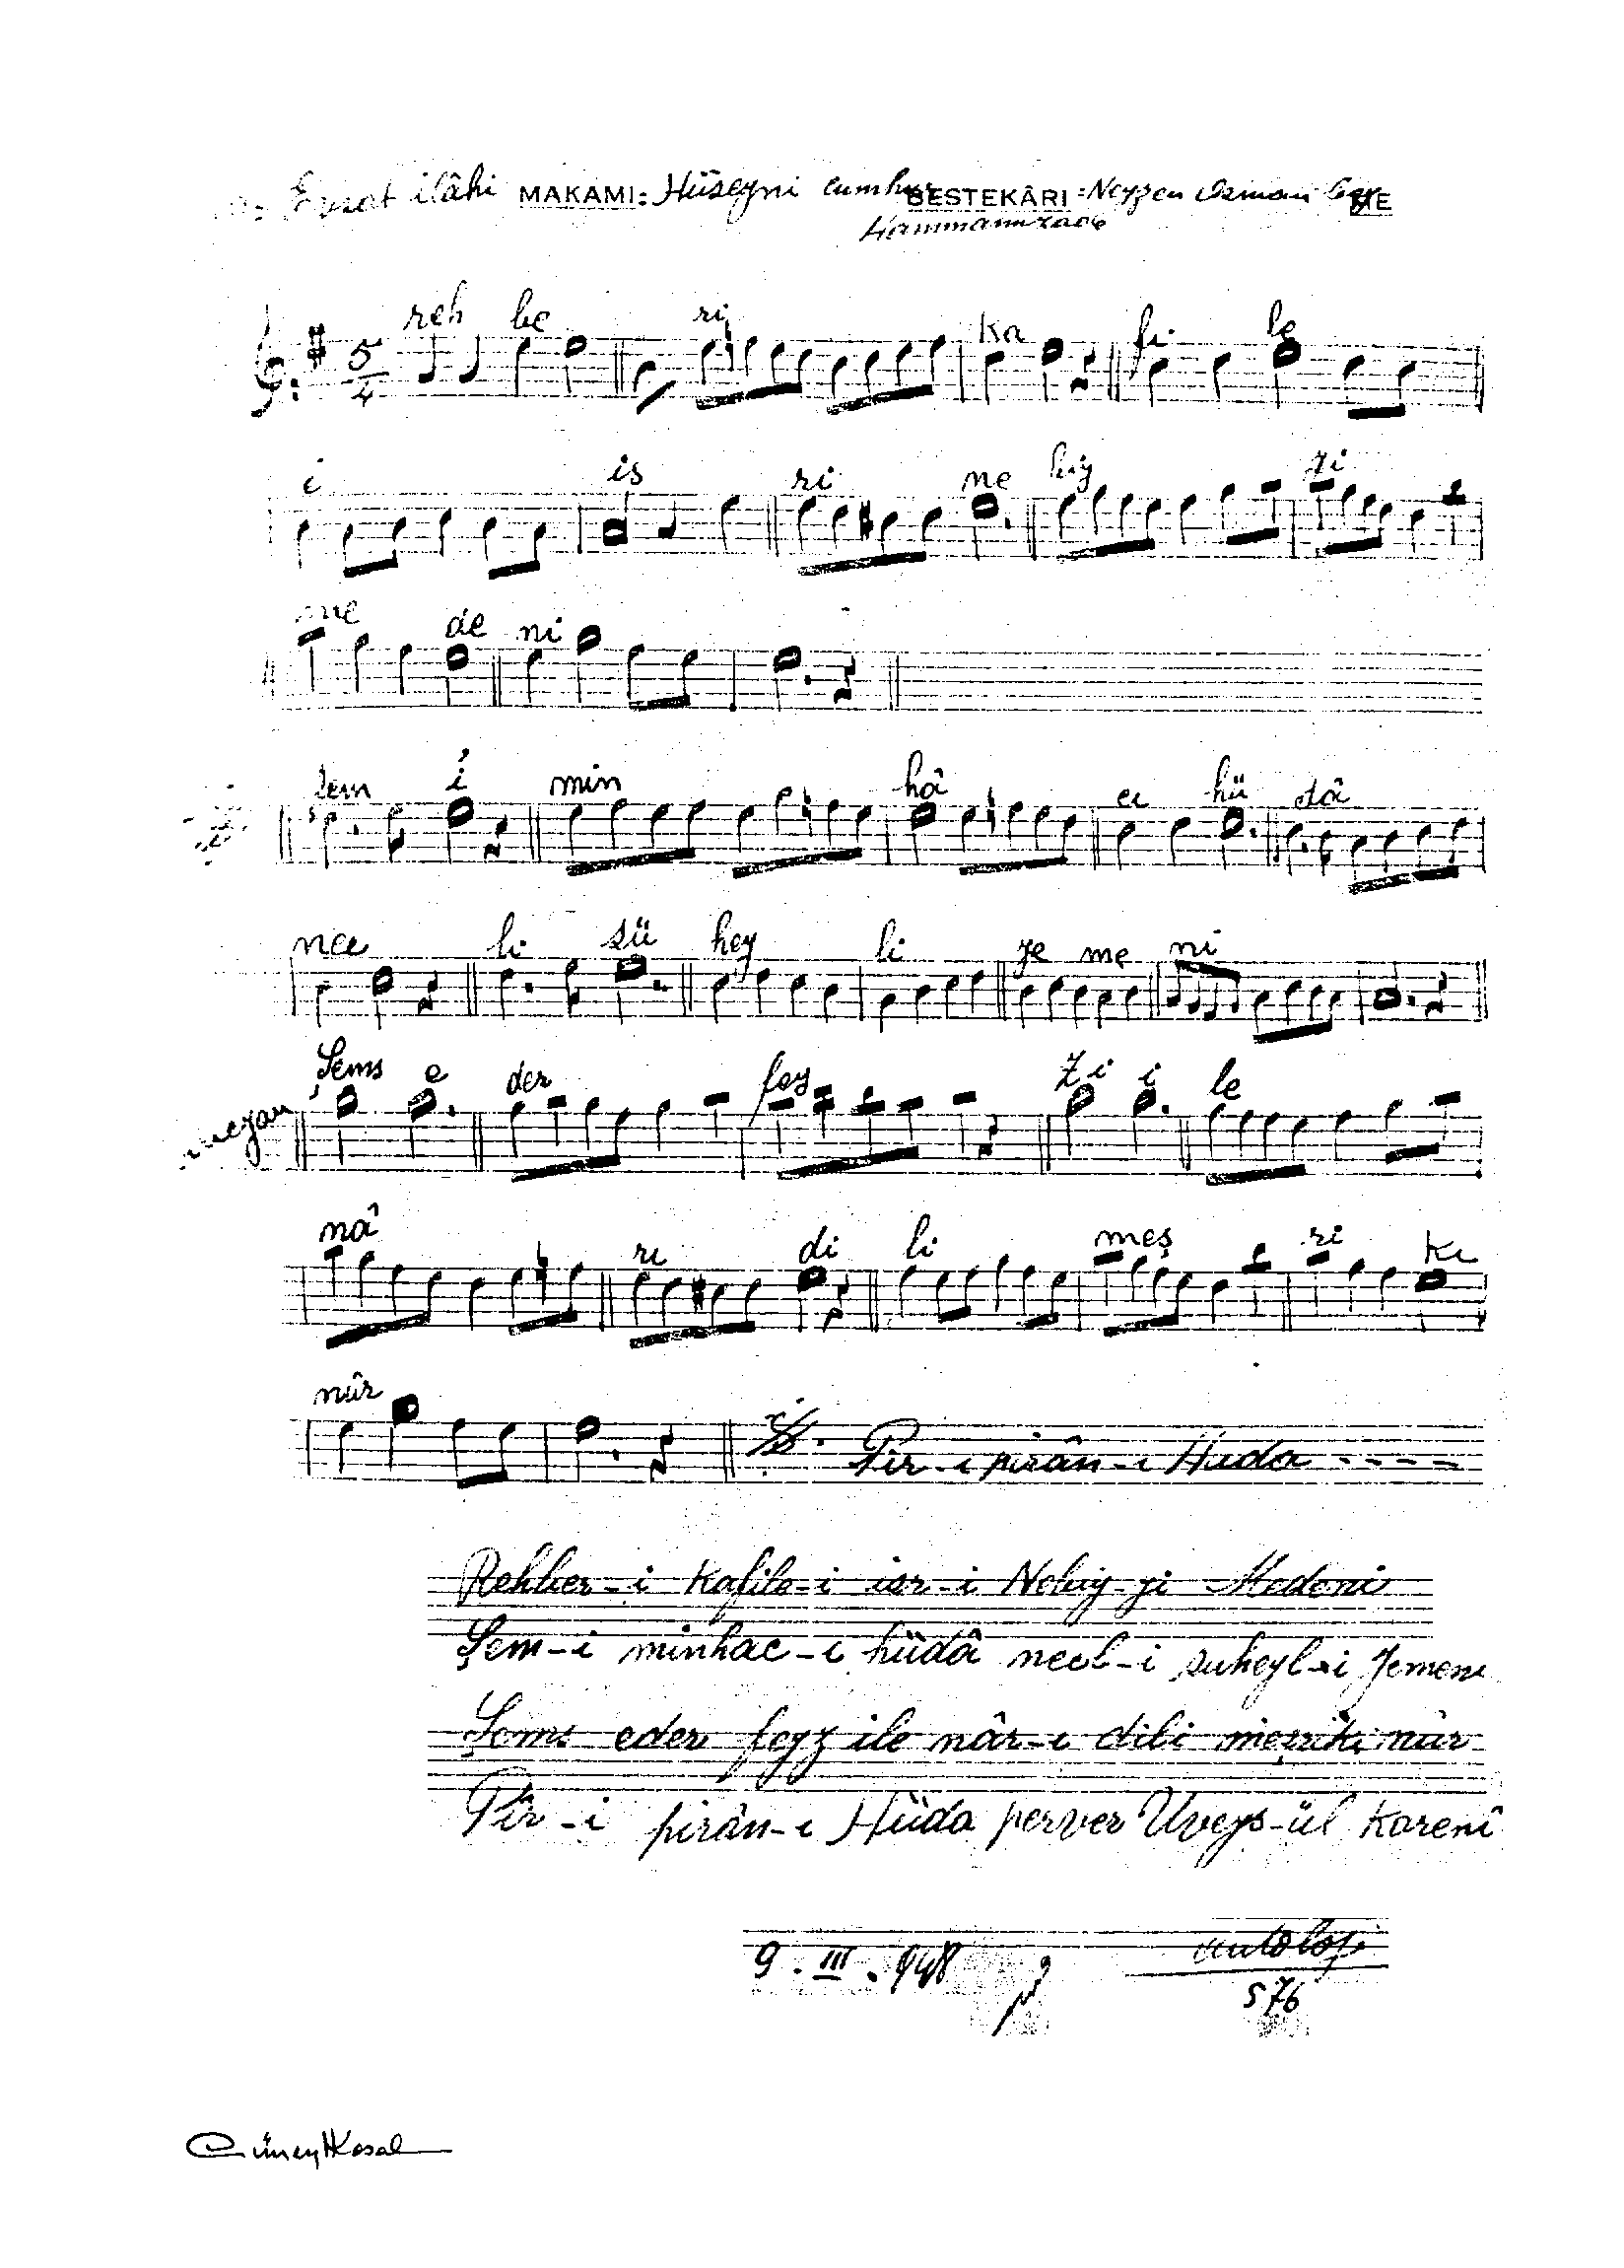 Evsat ilâhi MAKAMI: Hüseyni cumhur BESTEKÂRI: Neyzen Osman bey
Hammamizade
5/4 reh be ri ka fi le
i is ri ne biy yi
me de ni
Şem i min hâ ci hü dâ
nec li sü hey li ye me ni
meyan Şems e der fey zi i le
nâ rı di li meş ri kı
nûr Pir-i pirân-ı Hüda - - - -
Rehber-i Kafile-i isr-i Nebiy-yi Medeni
Şem-i minhac-ı hüdâ necl-i süheyl-i Yemeni
Şems eder feyz ile nâr-ı dili meşrıkı nûr
Pîr-i pirân-ı Hüda perver Üveys-ül Karenî
9 . III . 948 antoloji
576
Cüneyt Kosal